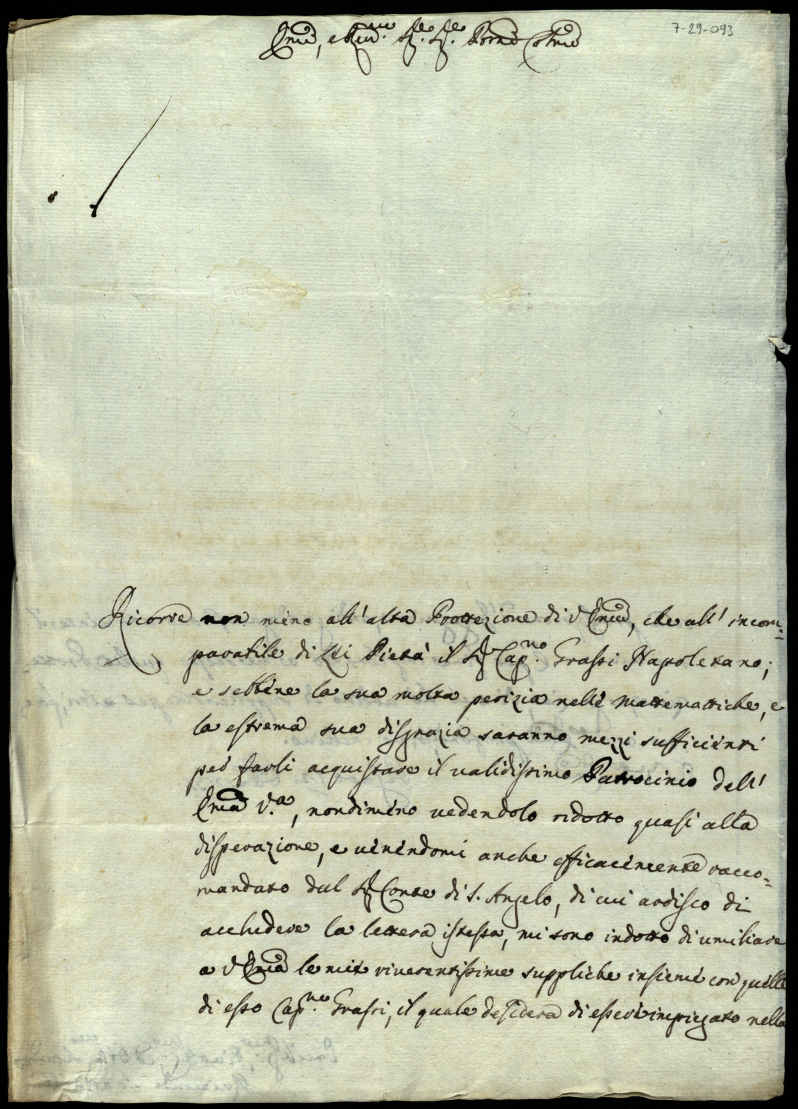 7-29-093
Em̃o, e Rm̃o Sig.e Sig.e Prõne Colm̃o
Ricorre non meno all'alta Protezione di V Em̃a, che all'incom=
parabile di Lei Pietà il Sig Cap.no Grassi Napoletano;
e sebbene la sua molta perizia nelle Mattemattiche, e
la estrema sua disgrazia saranno mezzi sufficienti
per farli acquistare il validissimo Patrocinio dell'
Em̃a V.a, nondimeno vedendolo ridotto quasi alla
disperazione, e venendomi anche efficacemente racco=
mandato dal Sig Conte di S. Angelo, di cui ardisco di
acchiudere la lettera istessa, mi sono indotto di umiliare
a V Em̃a le mie riverentissime suppliche insieme con quelle
di esso Cap.no Grassi, il quale desidera di essere impiegato nella